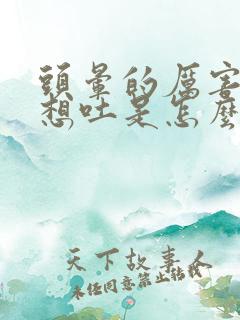 頭暈的厲害
想吐是怎麼
天下故事人
未经同意禁止转载